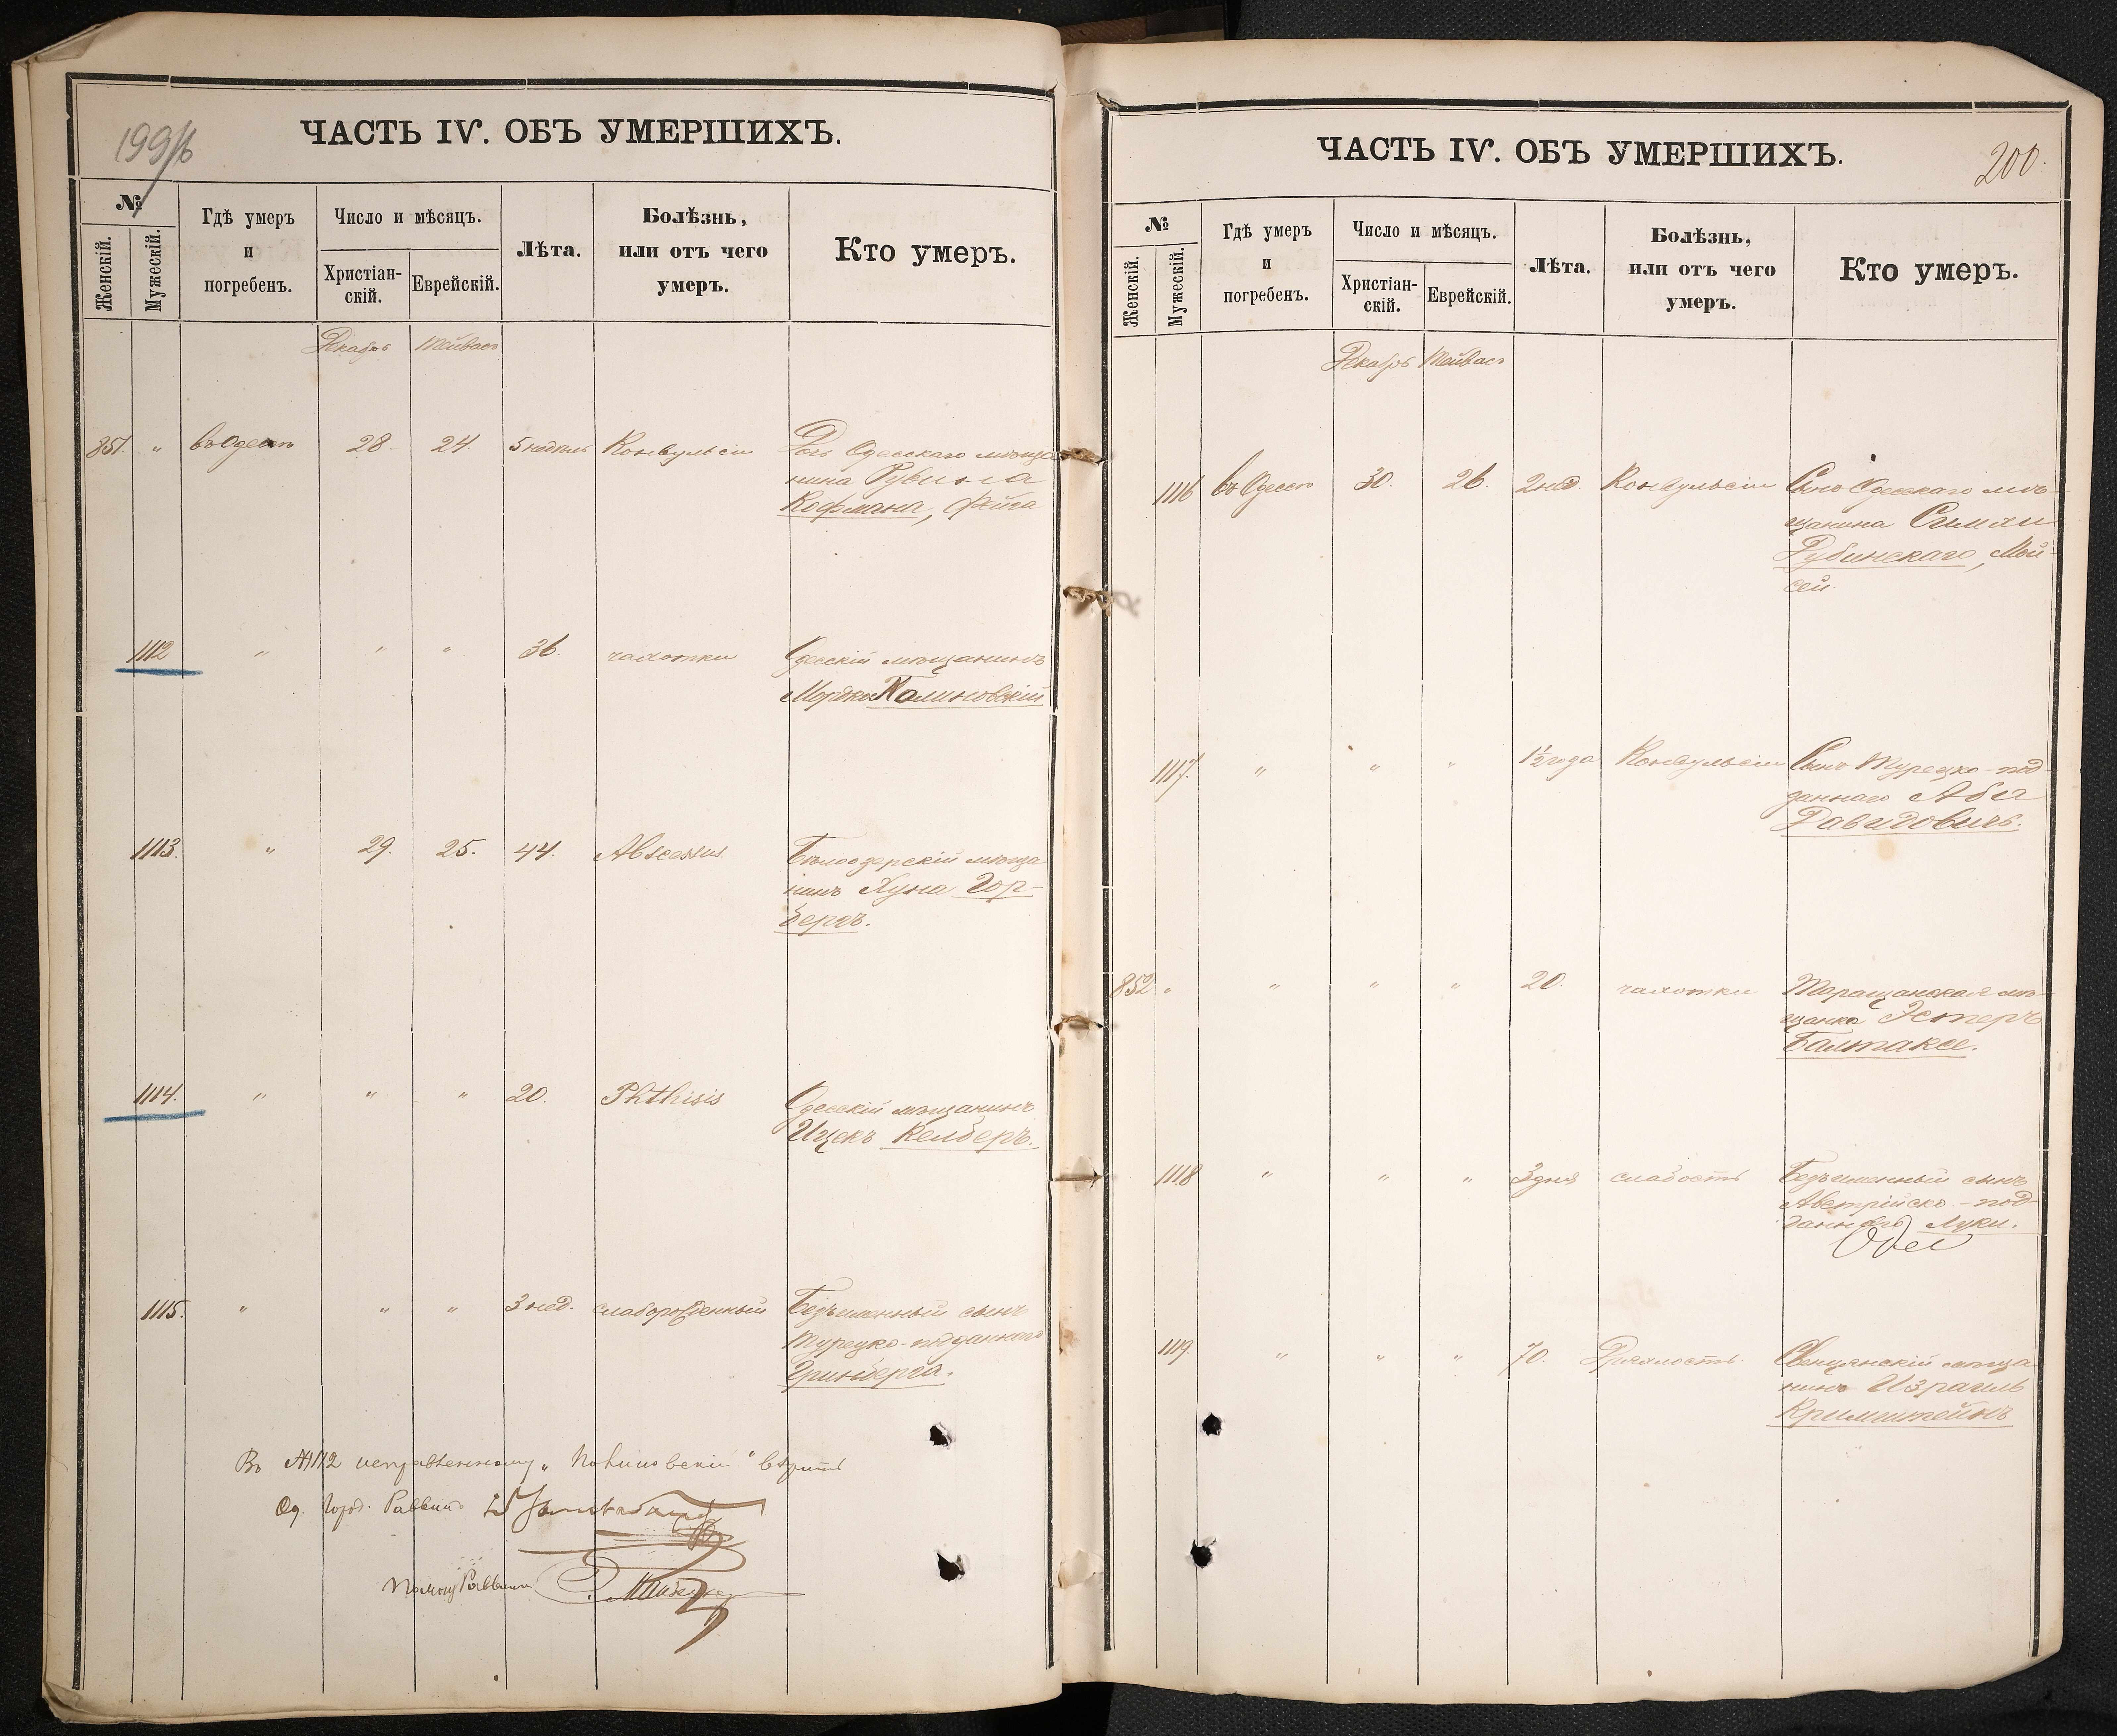 199/б
ЧАСТЬ IV. ОБЪ УМЕРШИХЪ.
№
Женскій.
Мужескій.
Гдѣ умеръ
и
погребенъ.
Число и мѣсяцъ.
Христіан-
скій.
Еврейскій.
Лѣта.
Болѣзнь,
или отъ чего
умеръ.
Кто умеръ.
Декабрь Тейвасъ
851. " въ Одессѣ 28 24. 5 недѣль Конвульсіи Дочь Одесскаго мѣща
нина Рувина
Кофмана, Фейга
1112 " " " 36. чахотки Одесскій мѣщанинъ
Мордко Полиновскій
1113. " 29. 25. 44. Abscessus Бѣлоозерскій мѣща-
нинъ Хуна Гор-
бергъ.
1114. " " " 20. Phthisis Одесскій мѣщанинъ
Ицекъ Келберъ.
1115. " " " 3 нед. слаборожденный Безъименный сынъ
Турецко-подданнаго
Гринберга.
Въ №1112 исправленному „Полиновскій" вѣрить
Од. Город. Раввинъ
Помощ. Раввина
ЧАСТЬ IV. ОБЪ УМЕРШИХЪ.
200.
№
Женскій.
Мужескій.
Гдѣ умеръ
и
погребенъ.
Число и мѣсяцъ.
Христіан-
скій.
Еврейскій.
Лѣта.
Болѣзнь,
или отъ чего
умеръ.
Кто умеръ.
Декабрь Тейвасъ
1116 въ Одессѣ 30. 26. 2 нед. Конвульсіи Сынъ Одесскаго мѣ-
щанина Симхи
Рубинскаго, Мой-
сей.
1117. " " " 1½ года Конвульсіи Сынъ Турецко-под-
даннаго Аба
Давидовичъ.
852 " " " " 20. чахотки Таращанская мѣ-
щанка Эстеръ
Балтаксе.
1118 " " " 3 дня слабость Безъименный сынъ
Австрійско-под-
даннаго Луки.
1119. " " " 70. Дряхлость. Свенцянскій мѣща
нинъ Израиль
Кримштейнъ